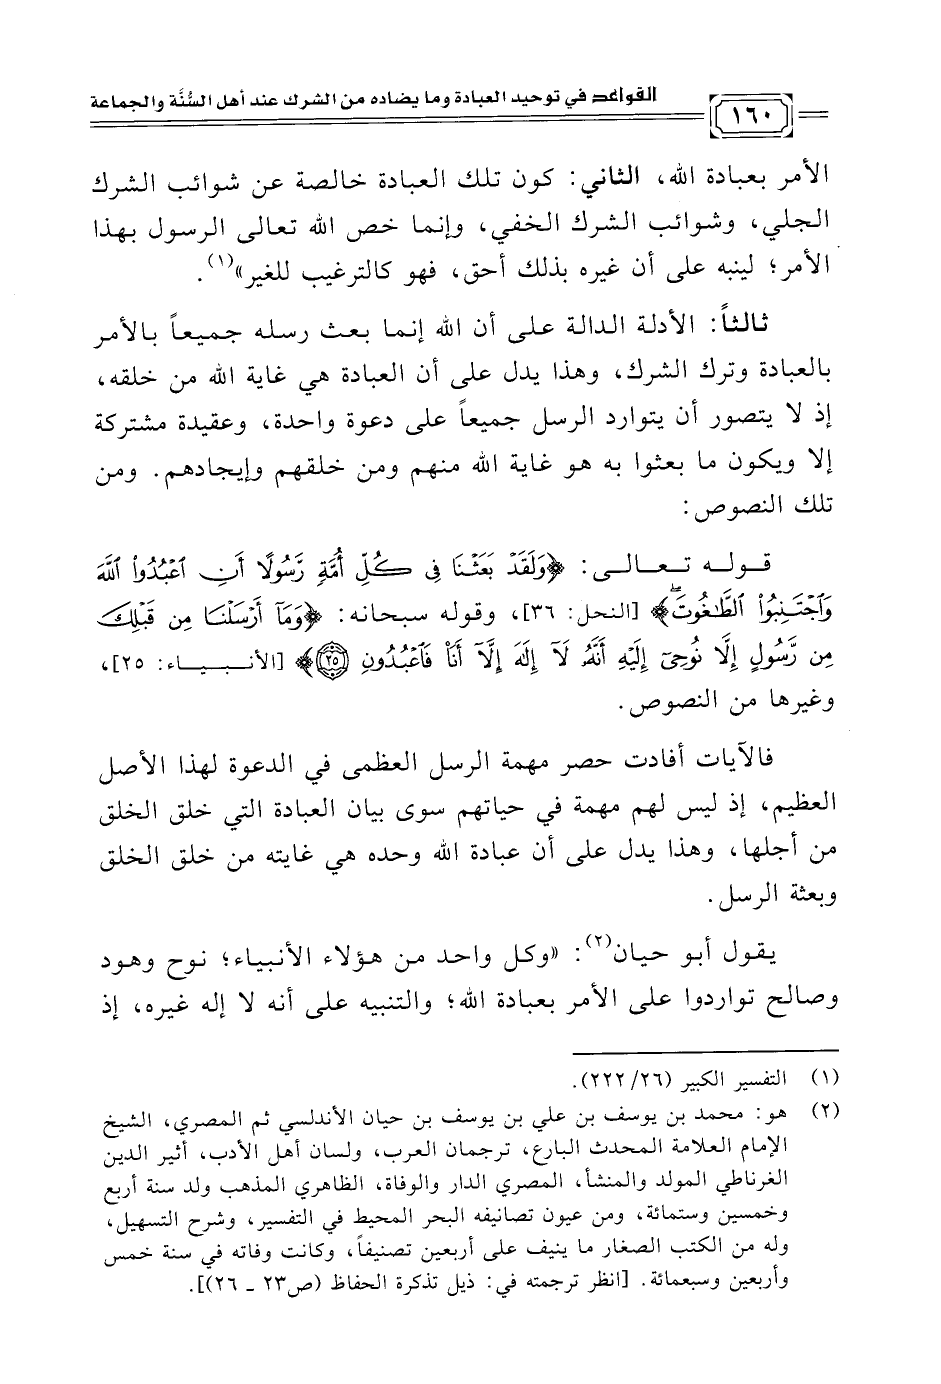 القواعد في توحيد العبادة وما يضاده من الشرك عند أهل السُّنَّة والجماعة
١٦٠
الأمر بعبادة الله، الثاني: كون تلك العبادة خالصة عن شوائب الشرك
الجلي، وشوائب الشرك الخفي، وإنما خص الله تعالى الرسول بهذا
الأمر؛ لينبه على أن غيره بذلك أحق، فهو كالترغيب للغير»(١).
ثالثاً: الأدلة الدالة على أن الله إنما بعث رسله جميعاً بالأمر
بالعبادة وترك الشرك، وهذا يدل على أن العبادة هي غاية الله من خلقه،
إذ لا يتصور أن يتوارد الرسل جميعاً على دعوة واحدة، وعقيدة مشتركة
إلا ويكون ما بعثوا به هو غاية الله منهم ومن خلقهم وإيجادهم. ومن
تلك النصوص:
قوله تعالى: ﴿وَلَقَدْ بَعَثْنَا فِى كُلِّ أُمَّةٍ رَّسُولًا أَنِ ٱعْبُدُواْ ٱللَّهَ
وَٱجْتَنِبُواْ ٱلطَّٰغُوتَۖ﴾ [النحل: ٣٦]، وقوله سبحانه: ﴿وَمَآ أَرْسَلْنَا مِن قَبْلِكَ
مِن رَّسُولٍ إِلَّا نُوحِىٓ إِلَيْهِ أَنَّهُۥ لَآ إِلَٰهَ إِلَّآ أَنَا۠ فَٱعْبُدُونِ ٢٥﴾ [الأنبياء: ٢٥]،
وغيرها من النصوص.
فالآيات أفادت حصر مهمة الرسل العظمى في الدعوة لهذا الأصل
العظيم، إذ ليس لهم مهمة في حياتهم سوى بيان العبادة التي خلق الخلق
من أجلها، وهذا يدل على أن عبادة الله وحده هي غايته من خلق الخلق
وبعثة الرسل.
يقول أبو حيان(٢): «وكل واحد من هؤلاء الأنبياء؛ نوح وهود
وصالح تواردوا على الأمر بعبادة الله؛ والتنبيه على أنه لا إله غيره، إذ
(١) التفسير الكبير (٢٢٢/٢٦).
(٢) هو: محمد بن يوسف بن علي بن يوسف بن حيان الأندلسي ثم المصري، الشيخ
الإمام العلامة المحدث البارع، ترجمان العرب، ولسان أهل الأدب، أثير الدين
الغرناطي المولد والمنشأ، المصري الدار والوفاة، الظاهري المذهب ولد سنة أربع
وخمسين وستمائة، ومن عيون تصانيفه البحر المحيط في التفسير، وشرح التسهيل،
وله من الكتب الصغار ما ينيف على أربعين تصنيفاً، وكانت وفاته في سنة خمس
وأربعين وسبعمائة. [انظر ترجمته في: ذيل تذكرة الحفاظ (ص٢٣ ـ ٢٦)].